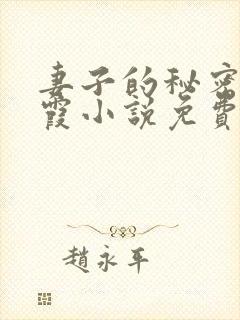 妻子的秘密
霞小說免費
趙永年